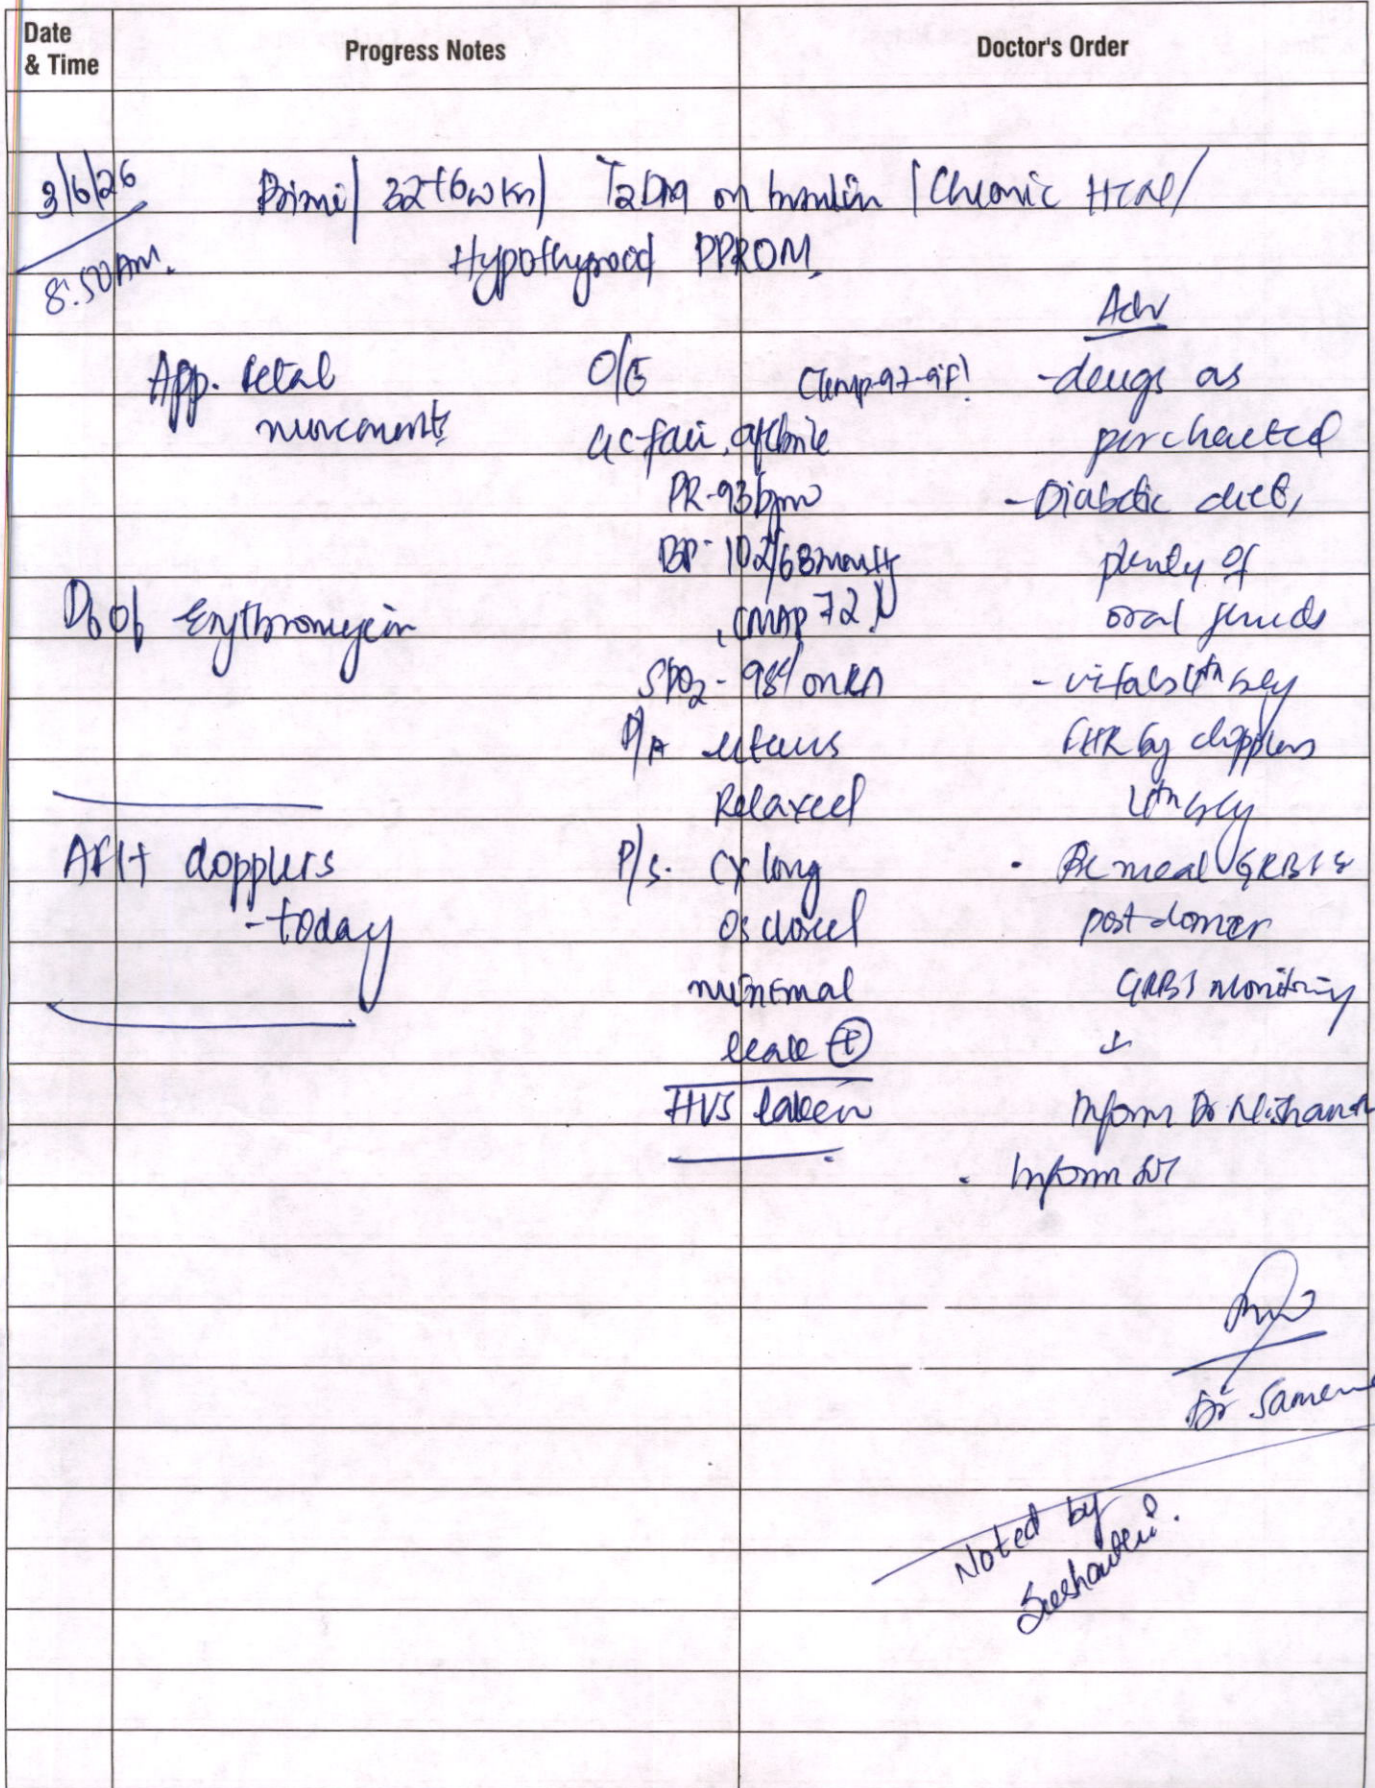 Date & Time
Progress Notes
Doctor's Order
3/6/26
8:50 AM.
Primi/ 32+6wks/ T2DM on Insulin / Chronic HTN/
Hypothyroid PPROM.
Adv
App. fetal movements
D6 of Erythromycin
AFI+ dopplers
- today
O/E
(Temp-97.9F)
GC fair, afebrile
PR-93bpm
BP- 102/63mmHg
(MAP 72)
SPO2 - 98% on RA
P/A uterus
Relaxed
P/S. CX long
Os closed
minimal
leak ⊕
HVS taken
- drugs as
per charted
- Diabetic diet,
plenty of
oral fluids
- vitals 4th hly
FHR by dopplers
4th hly
· Pre meal GRBS &
post dinner
GRBS monitoring
↓
Inform Dr. Nishanth
· Inform
Dr
Noted by